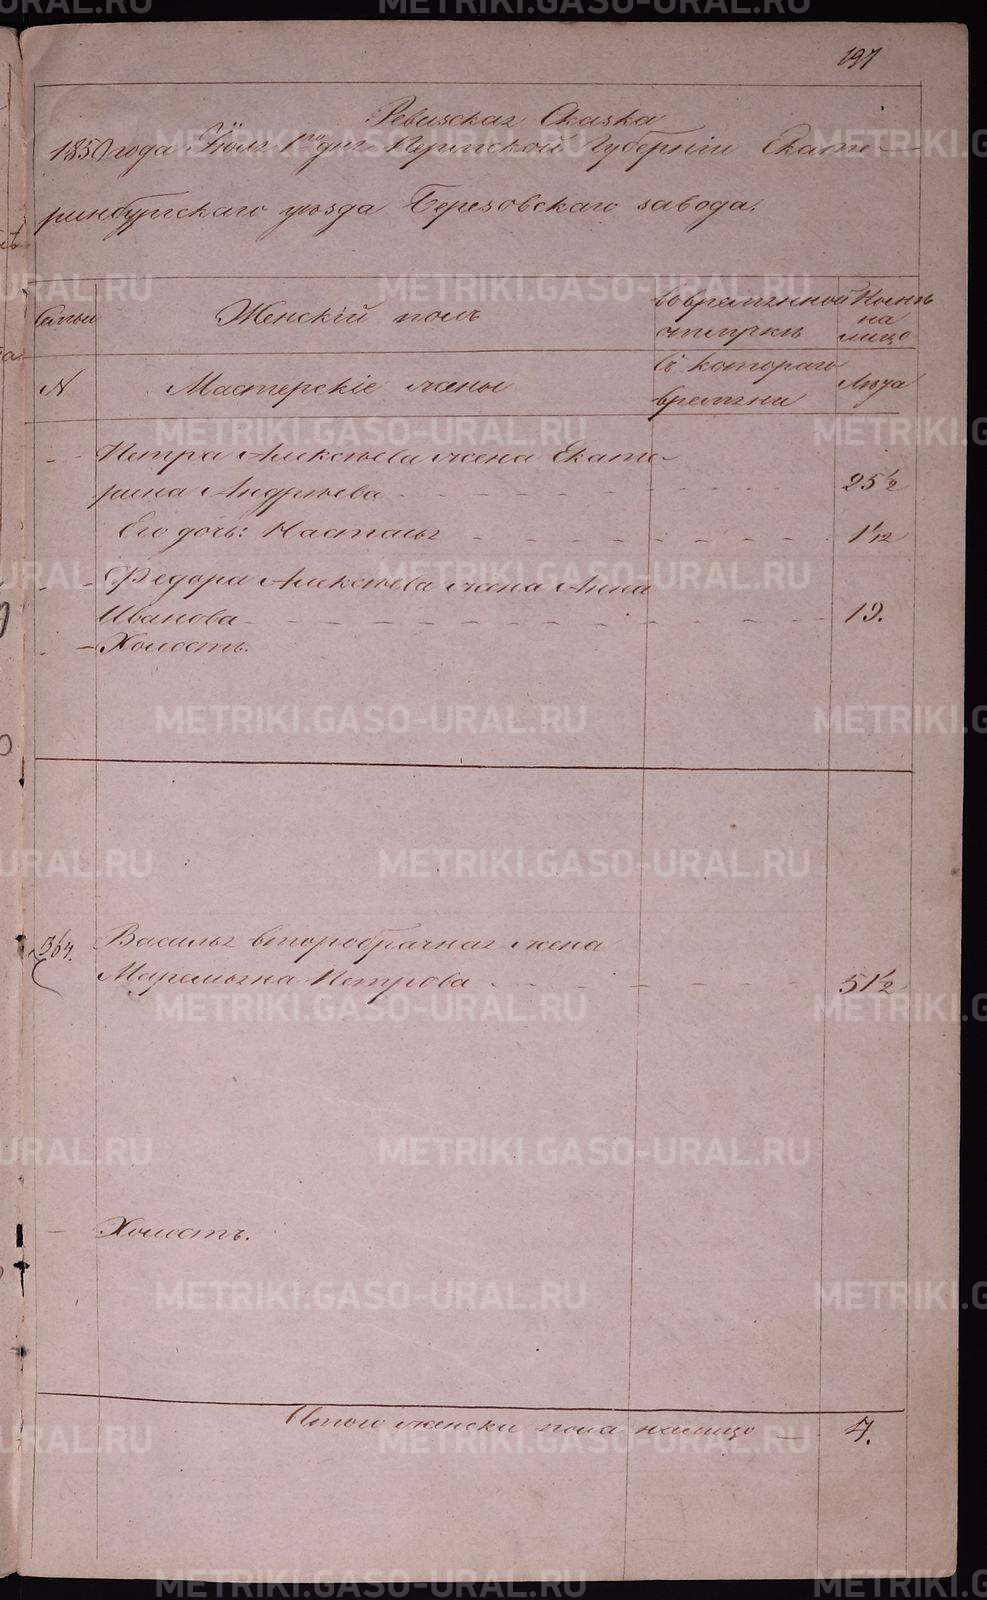 197
Ревизская Сказка
1850 года Іюля 1го дня Пермской Губерніи Екате-
ринбургскаго уѣзда Березовскаго завода.
Семьи
Женскій полъ
Во временной
отлучкѣ
Нынѣ
на
лицо
N
Мастерскіе жены
Съ котораго
времени
Лѣта
- - Петра Алексѣева жена Екате-
рина Андреева 25 1/2
Его дочь: Настасья 1/12
- - Федора Алексѣева жена Анна
Иванова 19.
- - Холостъ.
364.
Василья второбрачная жена
Маремьяна Петрова 51 1/2
- Холостъ.
Итого женска пола налицо 4.
METRIKI.GASO-URAL.RU